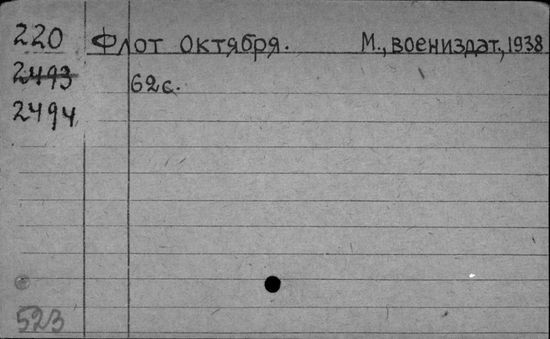 220 Флот октября. М., воениздат, 1938
2493 62с.
2494
523